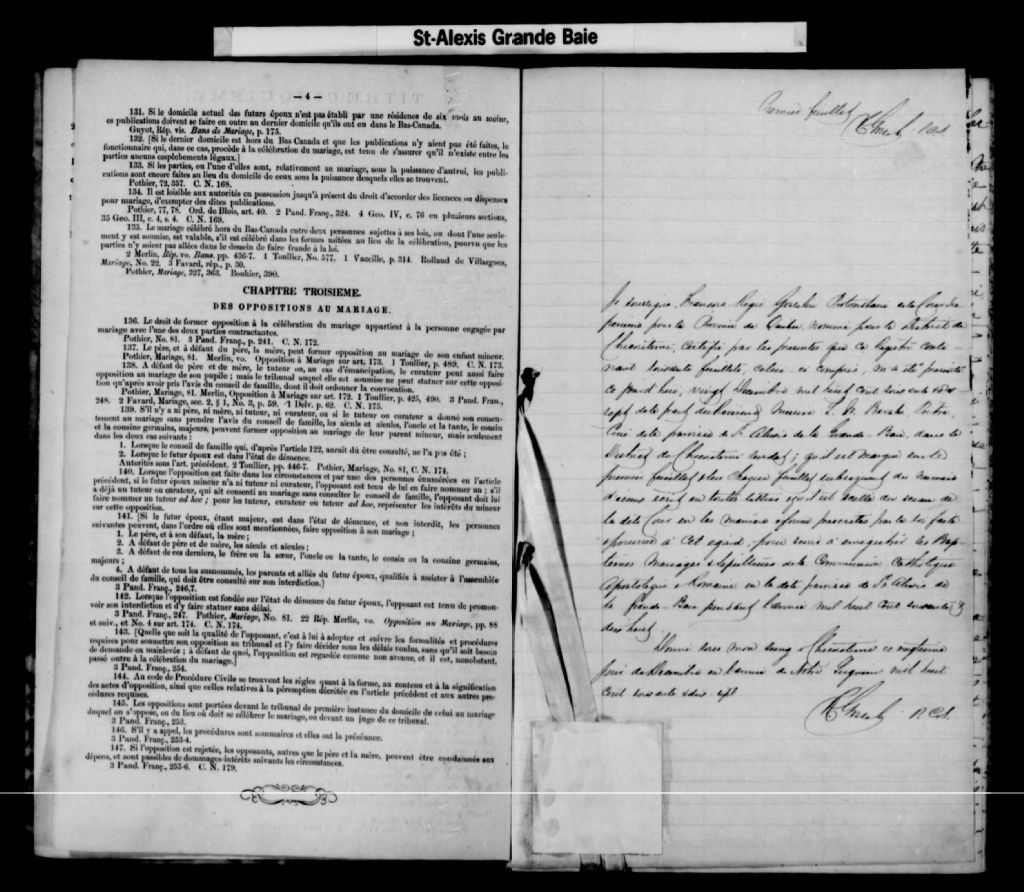 St-Alexis Grande Baie
— 4 —
131. Si le domicile actuel des futurs époux n'est pas établi par une résidence de six mois au moins,
ces publications doivent se faire en outre au dernier domicile qu'ils ont eu dans le Bas-Canada.
Guyot, Rép. vis. Bans de Mariage, p. 175.
132. [Si le dernier domicile est hors du Bas Canada et que les publications n'y aient pas été faites, le
fonctionnaire qui, dans ce cas, procède à la célébration du mariage, est tenu de s'assurer qu'il n'existe entre les
parties aucuns empêchements légaux.]
133. Si les parties, ou l'une d'elles sont, relativement au mariage, sous la puissance d'autrui, les publi-
cations sont encore faites au lieu du domicile de ceux sous la puissance desquels elles se trouvent.
Pothier, 72, 357. C. N. 168.
134. Il est loisible aux autorités en possession jusqu'à présent du droit d'accorder des licences ou dispenses
pour mariage, d'exempter des dites publications.
Pothier, 77, 78. Ord. de Blois, art. 40. 2 Pand. Franç., 324. 4 Geo. IV, c. 76 en plusieurs sections,
35 Geo. III, c. 4, s. 4. C. N. 169.
135. Le mariage célébré hors du Bas-Canada entre deux personnes sujettes à ses lois, ou dont l'une seule-
ment y est soumise, est valable, s'il est célébré dans les formes usitées au lieu de la célébration, pourvu que les
parties n'y soient pas allées dans le dessein de faire fraude à la loi.
2 Merlin, Rép. vo. Bans. pp. 436-7. 1 Toullier, No. 577. 1 Vazeille, p. 314. Rolland de Villargues,
Mariage, No. 22. 3 Favard, rép., p. 30.
Pothier, Mariage, 327, 363. Bouhier, 390.
CHAPITRE TROISIEME.
DES OPPOSITIONS AU MARIAGE.
136. Le droit de former opposition à la célébration du mariage appartient à la personne engagée par
mariage avec l'une des deux parties contractantes.
Pothier, No. 81. 3 Pand. Franç., p. 241. C. N. 172.
137. Le père, et à défaut du père, la mère, peut former opposition au mariage de son enfant mineur.
Pothier, Mariage, 81. Merlin, vo. Opposition à Mariage sur art. 173. 1 Toullier, p. 489. C. N. 173.
138. A défaut de père et de mère, le tuteur ou, au cas d'émancipation, le curateur peut aussi faire
opposition au mariage de son pupille ; mais le tribunal auquel elle est soumise ne peut statuer sur cette opposi-
tion qu'après avoir pris l'avis du conseil de famille, dont il doit ordonner la convocation.
Pothier, Mariage, 81. Merlin, Opposition à Mariage sur art. 172. 1 Toullier, p. 425, 490. 3 Pand. Fran.,
248. 2 Favard, Mariage, sec. 2, § 1, No. 3, p. 59. 1 Delv. p. 62. C. N. 175.
139. S'il n'y a ni père, ni mère, ni tuteur, ni curateur, ou si le tuteur ou curateur a donné son consen-
tement au mariage sans prendre l'avis du conseil de famille, les aïeuls et aïeules, l'oncle et la tante, le cousin
et la cousine germains, majeurs, peuvent former opposition au mariage de leur parent mineur, mais seulement
dans les deux cas suivants :
1. Lorsque le conseil de famille qui, d'après l'article 122, aurait dû être consulté, ne l'a pas été ;
2. Lorsque le futur époux est dans l'état de démence.
Autorités sous l'art. précédent. 2 Toullier, pp. 446-7. Pothier, Mariage, No. 81, C. N. 174.
140. Lorsque l'opposition est faite dans les circonstances et par une des personnes énumérées en l'article
précédent, si le futur époux mineur n'a ni tuteur ni curateur, l'opposant est tenu de lui en faire nommer un ; s'il
a déjà un tuteur ou curateur, qui ait consenti au mariage sans consulter le conseil de famille, l'opposant doit lui
faire nommer un tuteur ad hoc ; pour les tuteur, curateur ou tuteur ad hoc, représenter les intérêts du mineur
sur cette opposition.
141. [Si le futur époux, étant majeur, est dans l'état de démence, et non interdit, les personnes
suivantes peuvent, dans l'ordre où elles sont mentionnées, faire opposition à son mariage ;
1. Le père, et à son défaut, la mère ;
2. A défaut de père et de mère, les aïeuls et aïeules ;
3. A défaut de ces derniers, le frère ou la sœur, l'oncle ou la tante, le cousin ou la cousine germains,
majeurs ;
4. A défaut de tous les susnommés, les parents et alliés du futur époux, qualifiés à assister à l'assemblée
du conseil de famille, qui doit être consulté sur son interdiction.]
3 Pand. Franç., 246,7.
142. Lorsque l'opposition est fondée sur l'état de démence du futur époux, l'opposant est tenu de promou-
voir son interdiction et d'y faire statuer sans délai.
3 Pand. Franç., 247. Pothier, Mariage, No. 81. 22 Rép. Merlin, vo. Opposition au Mariage, pp. 88
et suiv., et No. 4 sur art. 174. C. N. 174.
143. [Quelle que soit la qualité de l'opposant, c'est à lui à adopter et suivre les formalités et procédures
requises pour soumettre son opposition au tribunal et l'y faire décider sous les délais voulus, sans qu'il soit besoin
de demande en mainlevée ; à défaut de quoi, l'opposition est regardée comme non avenue, et il est, nonobstant,
passé outre à la célébration du mariage.]
3 Pand. Franç., 254.
144. Au code de Procédure Civile se trouvent les règles quant à la forme, au contenu et à la signification
des actes d'opposition, ainsi que celles relatives à la péremption décrétée en l'article précédent et aux autres pro-
cédures requises.
145. Les oppositions sont portées devant le tribunal de première instance du domicile de celui au mariage
duquel on s'oppose, ou du lieu où doit se célébrer le mariage, ou devant un juge de ce tribunal.
3 Pand. Franç., 253.
146. S'il y a appel, les procédures sont sommaires et elles ont la préséance.
3 Pand. Franç., 253-4.
147. Si l'opposition est rejetée, les opposants, autres que le père et la mère, peuvent être condamnés aux
dépens, et sont passibles de dommages-intérêts suivants les circonstances.
3 Pand. Franç., 255-6. C. N. 179.
Premier feuillet
Je soussigné, François Régis Gosselin Protonotaire de la Cour Su
périeure pour la Province de Québec, nommé pour le District de
Chicoutimi, certifie par les présentes que ce Registre conte-
nant soixante feuillets, celui-ci compris, m'a été présenté
ce jourd'hui, vingt Décembre mil huit cent soixante & dix
sept de la part du Révérend Messire
Curé de la paroisse de St Alexis de la Grande-Baie, dans le
District de Chicoutimi susdit ; qu'il est marqué sur le
premier feuillet & sur chaque feuillet subséquent du numéro
d'iceux écrit en toutes lettres & qu'il est scellé du sceau de
la dite Cour en la manière & forme prescrites par la loi faite
& pourvue à cet égard, pour servir à enregistrer les Bap-
têmes Mariages & Sépultures de la Communion Catholique
Apostolique & Romaine en la dite paroisse de St Alexis de
la Grande-Baie pendant l'année mil huit cent soixante &
dix huit
Donné sous mon seing à Chicoutimi ce vingtième
jour de Décembre en l'année de Notre Seigneur mil huit
cent soixante & dix-sept
P.C.S.